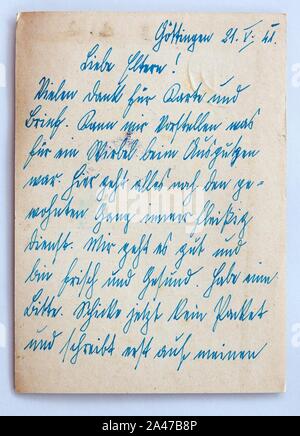 Göttingen 21. V. 41.
Liebe Eltern!
Vielen Dank für Karte und
Brief. Kann mir vorstellen was
für ein Wirbel beim Ausputzen
war. Hier geht alles noch den ge=
wohnten Gang immer fleißig
Dienst. Mir geht es gut und
bin frisch und Gesund. Habe eine
Bitte. Schicke jetzt kein Packet
und schreibt erst auf meinen
alamy
www.alamy.com
2A47B8P